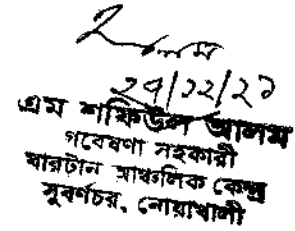 ২৭/১২/২১
এম শফিউল আলম
গবেষণা সহকারী
বারটান আঞ্চলিক কেন্দ্র
সুবর্ণচর, নোয়াখালী